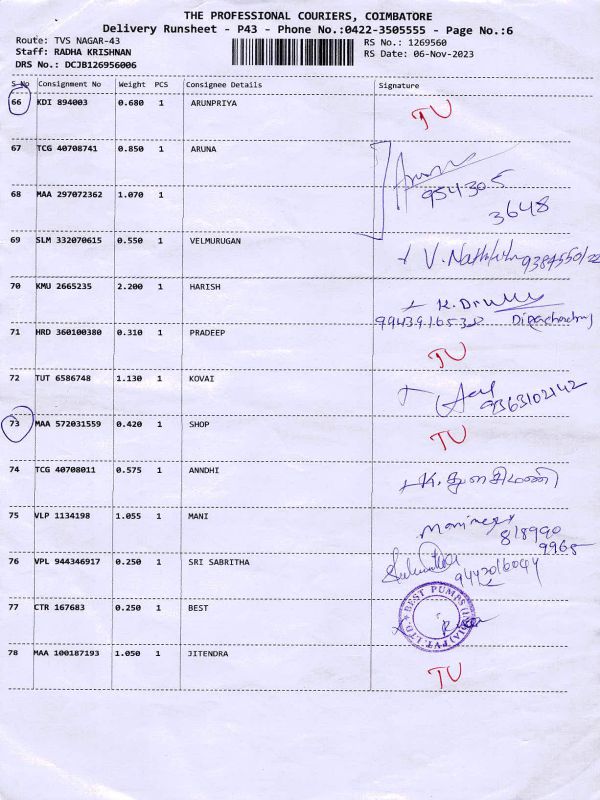 THE PROFESSIONAL COURIERS, COIMBATORE
Delivery Runsheet - P43 - Phone No.:0422-3505555 - Page No.:6
Route: TVS NAGAR-43 RS No.: 1269560
Staff: RADHA KRISHNAN RS Date: 06-Nov-2023
DRS No.: DCJB126956006
S-No Consignment No Weight PCS Consignee Details Signature
66 KDI 894003 0.680 1 ARUNPRIYA TU
67 TCG 40708741 0.850 1 ARUNA
954305
68 MAA 297072362 1.070 1 3648
69 SLM 332070615 0.550 1 VELMURUGAN V.
70 KMU 2665235 2.200 1 HARISH K.
71 HRD 360100380 0.310 1 PRADEEP TU
72 TUT 6586748 1.130 1 KOVAI 9363102142
73 MAA 572031559 0.420 1 SHOP TU
74 TCG 40708011 0.575 1 ANNDHI K. துளசிமணி
75 VLP 1134198 1.055 1 MANI 818990
9968
76 VPL 944346917 0.250 1 SRI SABRITHA 9442016044
77 CTR 167683 0.250 1 BEST BEST PUMPS (INDIA) PVT. LTD.
78 MAA 100187193 1.050 1 JITENDRA TU